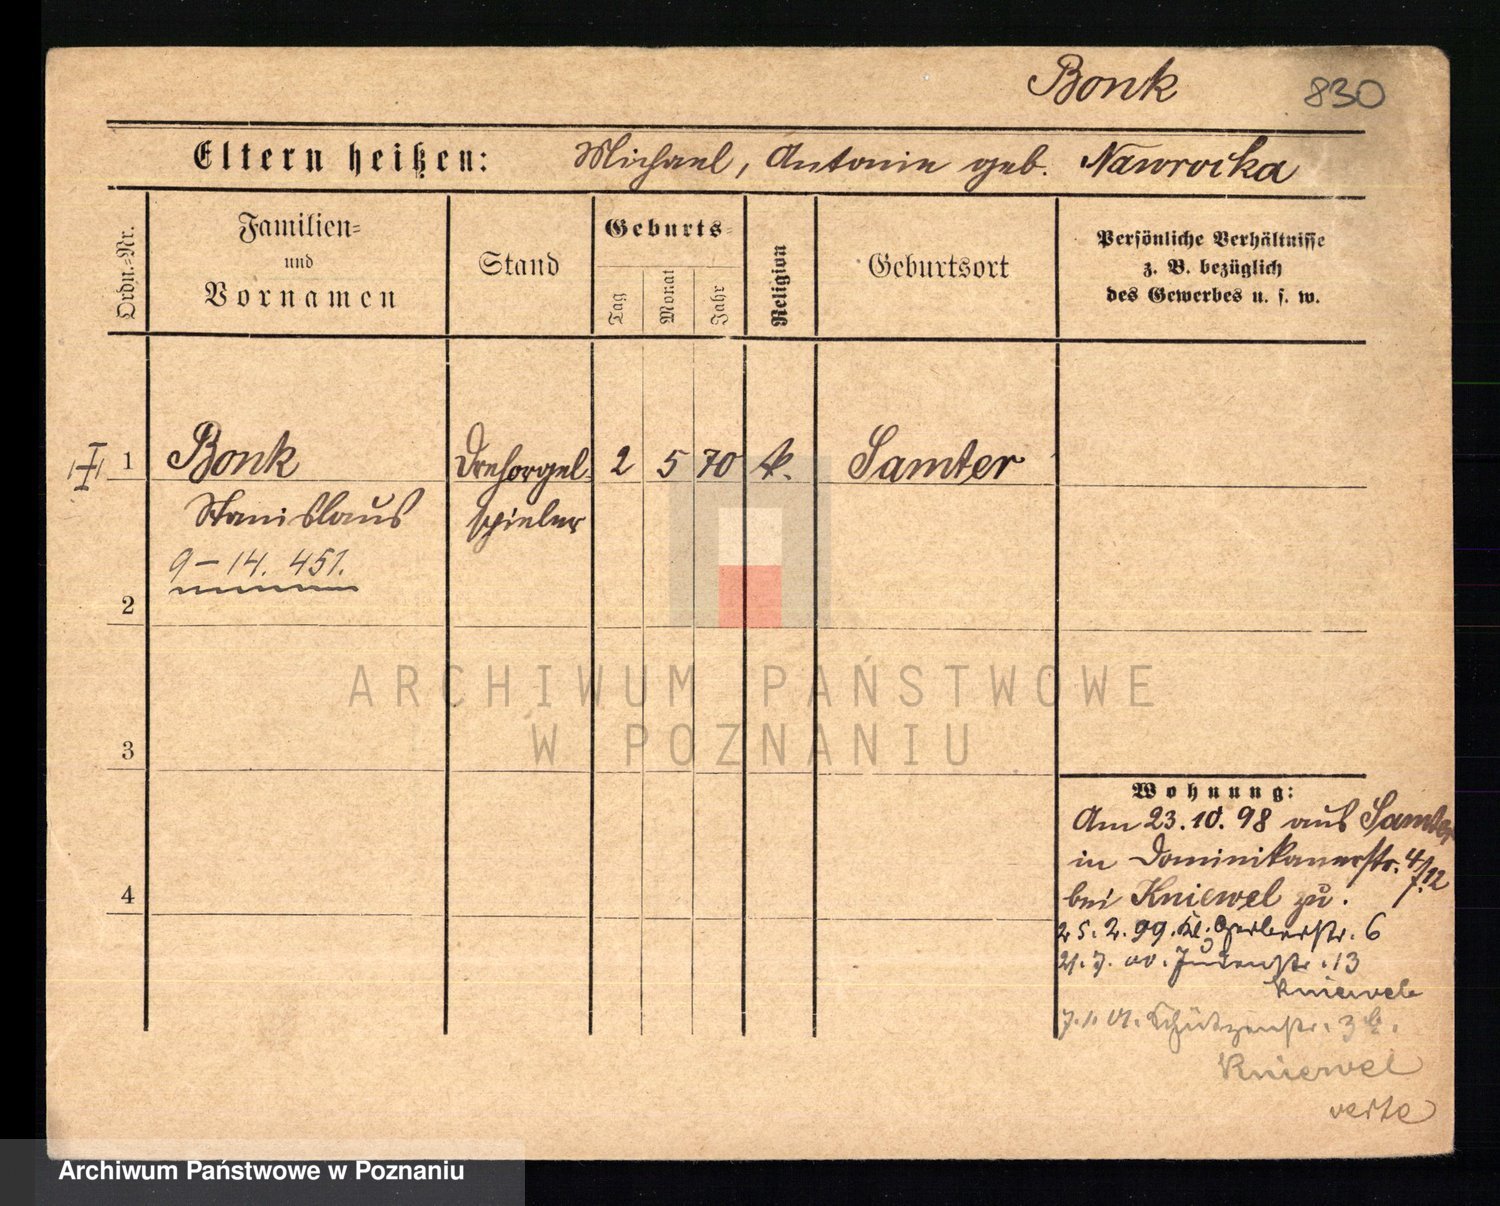 Bonk 830
Eltern heißen: Michael, Antonie geb. Nawrocka
Ordn.-Nr.
Familien- und Vornamen
Stand
Geburts-
Tag
Monat
Jahr
Religion
Geburtsort
Persönliche Verhältnisse
z. B. bezüglich
des Gewerbes u. s. w.
1 Bonk Drehorgel- 2 5 70 k. Samter
Stanislaus spieler
9-14. 451.
2
3
4
ARCHIWUM PAŃSTWOWE
W POZNANIU
Wohnung:
Am 23.10.98 aus Samter
in Dominikanerstr. 4/7.12
bei Kniewel zu.
25.2.99. Kl. Gerberstr. 6
21.7.00. Judenstr. 13
Kniewel
Schützenstr. 3 b.
Kniewel
verte
Archiwum Państwowe w Poznaniu